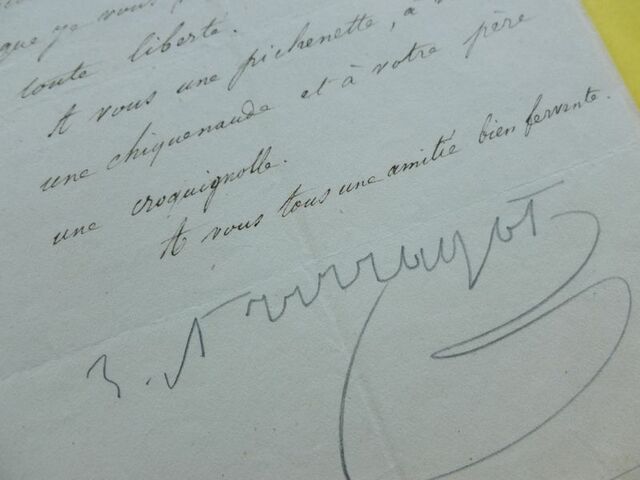 que je vous
toute liberté.
A vous une pichenette, à
une chiquenaude et à votre père
une croquignolle.
A vous tous une amitié bien fervente.